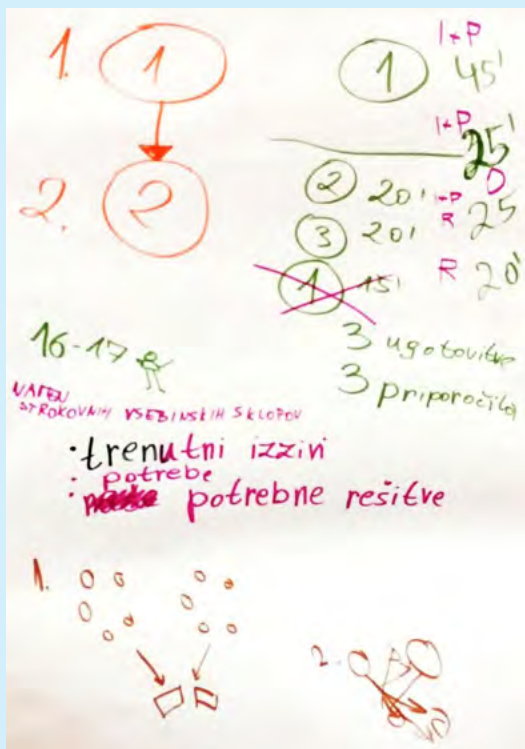 1. 1
2. 2
I+P
1 45'
I+P
25'
D
2 20' I+P
R 25
3 20'
1 15' R 20'
3 ugotovitve
3 priporočila
16-17
STROKOVNIH VSEBINSKIH SKLOPOV
• trenutni izzivi
• potrebe
• potrebne rešitve
1.
2.